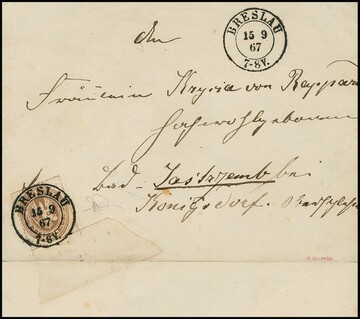 BRESLAU
15 9
67
7-8V.
An
Fräulein Krysia von Rappard
Hochwohlgeboren
Bad-Jastrzemb bei
Königsdorf.
BRESLAU
15 9
67
7-8V.